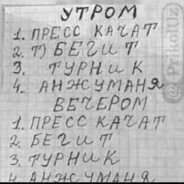 УТРОМ
1. ПРЕСС КАЧАТ
2. Т) БЕГИТ
3. ТУРНИК
4. АНЖУМАНЯ
ВЕЧЕРОМ
1. ПРЕСС КАЧАТ
2. БЕГИТ
3. ТУРНИК
4. АНЖУМАНЯ
© PrikolUz